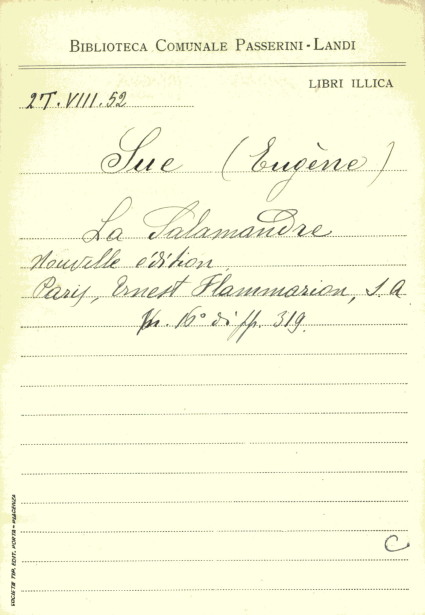 BIBLIOTECA COMUNALE PASSERINI-LANDI
LIBRI ILLICA
2T.VIII.52
Sue (Eugène)
La Salamandre
Nouvelle édition
Paris, Ernest Flammarion, S.A
in. 16° di pp. 319.
C
SOCIETÀ TIP. EDIT. PORTA - PIACENZA